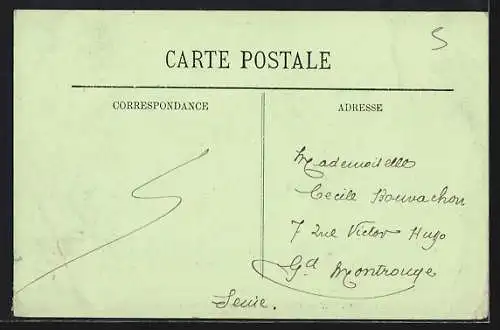 5
CARTE POSTALE
CORRESPONDANCE
ADRESSE
Mademoiselle
Cecile Bouvachon
7 Rue Victor Hugo
Gd Montrouge
Seine.